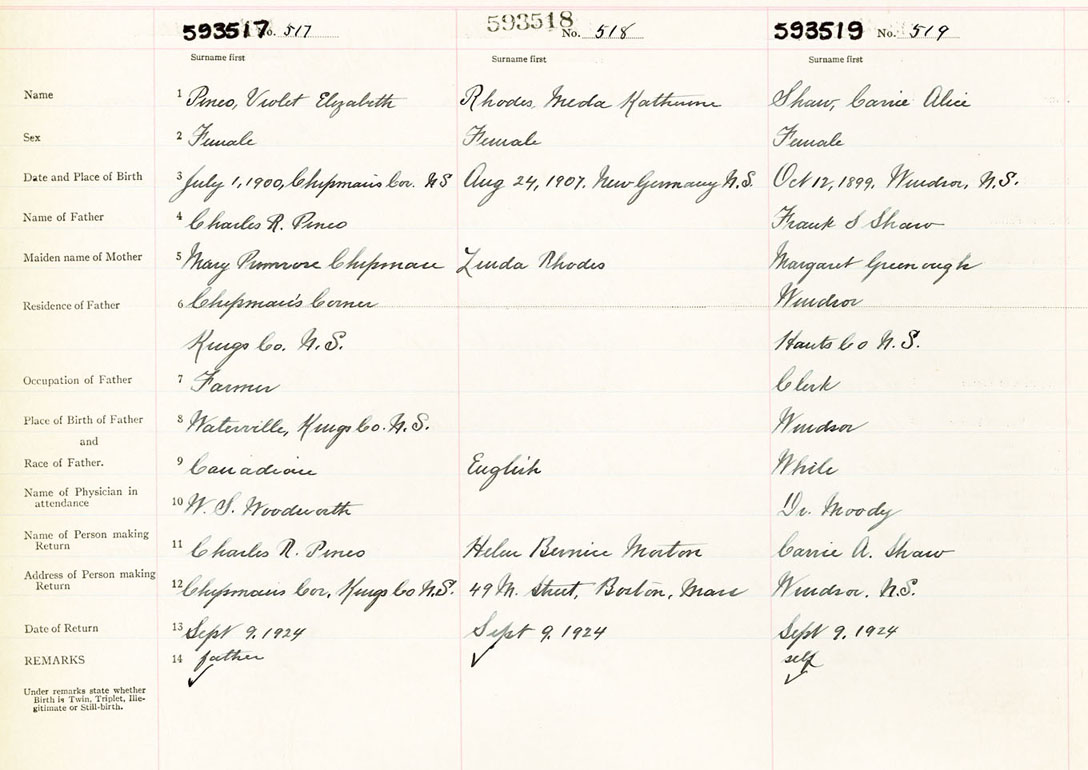 593517 No. 517 593518 No. 518 593519 No. 519
Surname first Surname first Surname first
Name 1 Pineo, Violet Elizabeth Rhodes, Meda Katherine Shaw, Carrie Alice
Sex 2 Female Female Female
Date and Place of Birth 3 July 1, 1900, Chipmans Cor. N.S Aug 24, 1907. New Germany N.S. Oct 12, 1899. Windsor, N.S.
Name of Father 4 Charles R. Pineo Frank S Shaw
Maiden name of Mother 5 Mary Primrose Chipman Linda Rhodes Margaret Greenough
Residence of Father 6 Chipman's Corner Windsor
Kings Co. N.S. Hants Co N.S.
Occupation of Father 7 Farmer Clerk
Place of Birth of Father 8 Waterville, Kings Co. N.S. Windsor
and
Race of Father. 9 Canadian English White
Name of Physician in
attendance 10 W. S. Woodworth Dr. Moody
Name of Person making
Return 11 Charles R. Pineo Helen Bernice Morton Carrie A. Shaw
Address of Person making
Return 12 Chipmans Cor, Kings Co N.S. 49 M. Street, Boston, Mass Windsor, N.S.
Date of Return 13 Sept 9, 1924 Sept 9, 1924 Sept 9, 1924
REMARKS 14 father self
Under remarks state whether
Birth is Twin, Triplet, Ille-
gitimate or Still-birth.